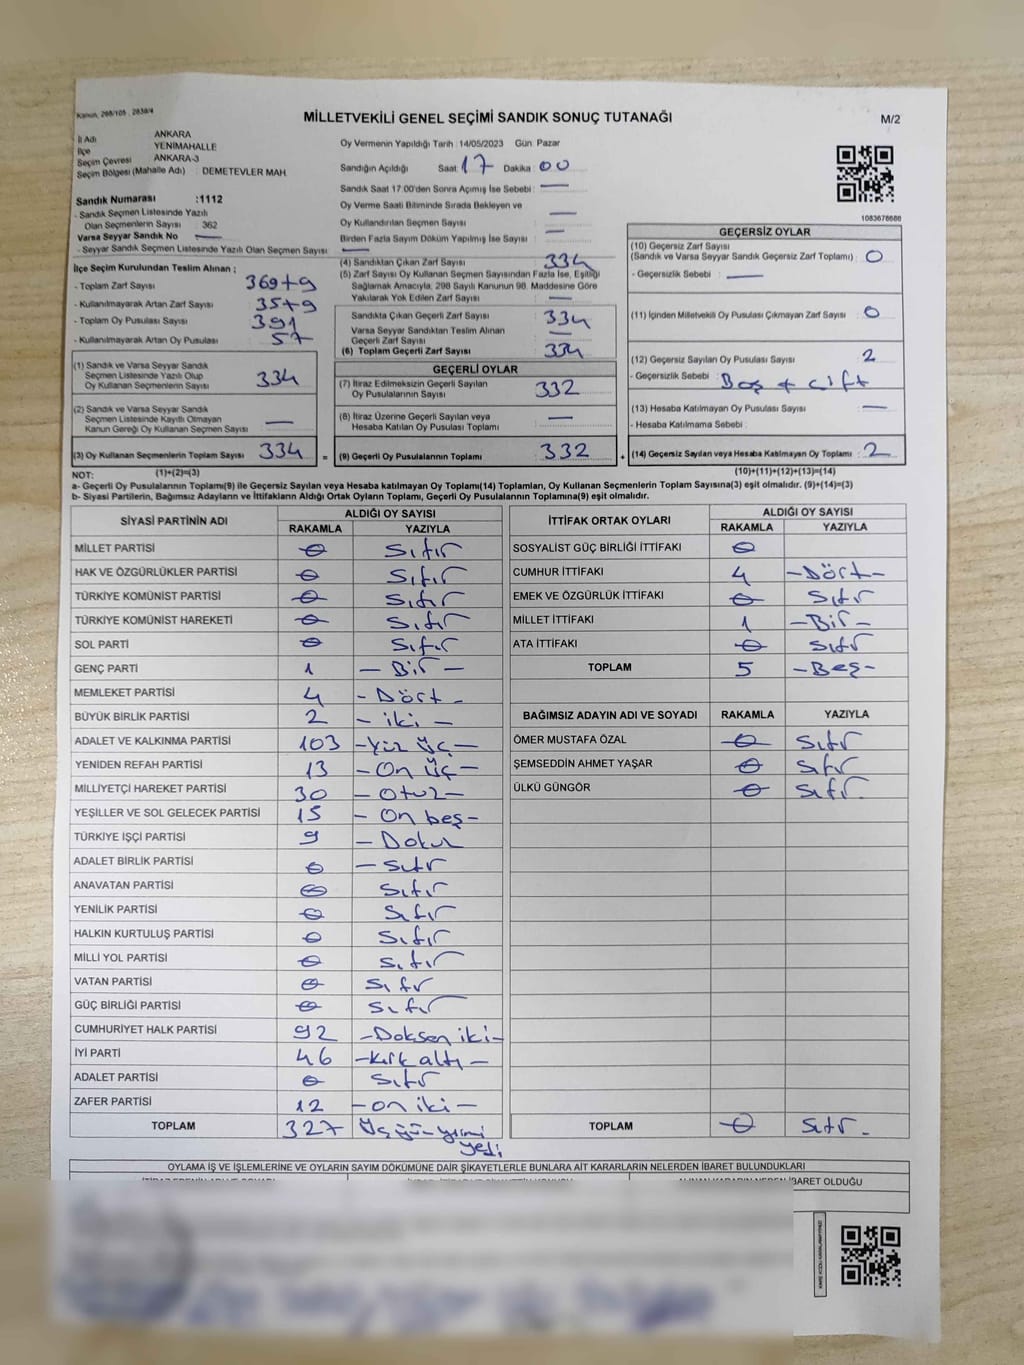 Kanun, 298/105 , 2839/4
MİLLETVEKİLİ GENEL SEÇİMİ SANDIK SONUÇ TUTANAĞI
M/2
İl Adı ANKARA
İlçe YENİMAHALLE
Seçim Çevresi ANKARA-3
Seçim Bölgesi (Mahalle Adı) : DEMETEVLER MAH.
Sandık Numarası :1112
- Sandık Seçmen Listesinde Yazılı
Olan Seçmenlerin Sayısı : 362
Varsa Seyyar Sandık No —
- Seyyar Sandık Seçmen Listesinde Yazılı Olan Seçmen Sayısı : —
Oy Vermenin Yapıldığı Tarih : 14/05/2023 Gün Pazar
Sandığın Açıldığı Saat : 17 Dakika : 00
Sandık Saat 17:00'den Sonra Açımış İse Sebebi : —
Oy Verme Saati Bitiminde Sırada Bekleyen ve
Oy Kullandırılan Seçmen Sayısı : —
Birden Fazla Sayım Döküm Yapılmış İse Sayısı : —
1083678686
İlçe Seçim Kurulundan Teslim Alınan ;
- Toplam Zarf Sayısı : 369+9
- Kullanılmayarak Artan Zarf Sayısı : 35+9
- Toplam Oy Pusulası Sayısı : 391
- Kullanılmayarak Artan Oy Pusulası : 57
(1) Sandık ve Varsa Seyyar Sandık
Seçmen Listesinde Yazılı Olup
Oy Kullanan Seçmenlerin Sayısı : 334
(2) Sandık ve Varsa Seyyar Sandık
Seçmen Listesinde Kayıtlı Olmayan
Kanun Gereği Oy Kullanan Seçmen Sayısı : —
(3) Oy Kullanan Seçmenlerin Toplam Sayısı : 334 =
(4) Sandıktan Çıkan Zarf Sayısı : 334
(5) Zarf Sayısı Oy Kullanan Seçmen Sayısından Fazla İse, Eşitliği
Sağlamak Amacıyla, 298 Sayılı Kanunun 98. Maddesine Göre
Yakılarak Yok Edilen Zarf Sayısı : —
Sandıkta Çıkan Geçerli Zarf Sayısı : 334
Varsa Seyyar Sandıktan Teslim Alınan
Geçerli Zarf Sayısı : —
(6) Toplam Geçerli Zarf Sayısı : 334
GEÇERLİ OYLAR
(7) İtiraz Edilmeksizin Geçerli Sayılan
Oy Pusulalarının Sayısı : 332
(8) İtiraz Üzerine Geçerli Sayılan veya
Hesaba Katılan Oy Pusulası Toplamı : —
(9) Geçerli Oy Pusulalarının Toplamı : 332 +
GEÇERSİZ OYLAR
(10) Geçersiz Zarf Sayısı
(Sandık ve Varsa Seyyar Sandık Geçersiz Zarf Toplamı) : 0
- Geçersizlik Sebebi : —
(11) İçinden Milletvekili Oy Pusulası Çıkmayan Zarf Sayısı : 0
(12) Geçersiz Sayılan Oy Pusulası Sayısı : 2
- Geçersizlik Sebebi : Boş + çift
(13) Hesaba Katılmayan Oy Pusulası Sayısı : —
- Hesaba Katılmama Sebebi :
(14) Geçersiz Sayılan veya Hesaba Katılmayan Oy Toplamı : 2
NOT: (1)+(2)=(3) (10)+(11)+(12)+(13)=(14)
a- Geçerli Oy Pusulalarının Toplamı(9) ile Geçersiz Sayılan veya Hesaba Katılmayan Oy Toplamı(14) Toplamları, Oy Kullanan Seçmenlerin Toplam Sayısına(3) eşit olmalıdır. (9)+(14)=(3)
b- Siyasi Partilerin, Bağımsız Adayların ve İttifakların Aldığı Ortak Oyların Toplamı, Geçerli Oy Pusulalarının Toplamına(9) eşit olmalıdır.
SİYASİ PARTİNİN ADI ALDIĞI OY SAYISI
RAKAMLA YAZIYLA
MİLLET PARTİSİ 0 Sıfır
HAK VE ÖZGÜRLÜKLER PARTİSİ 0 Sıfır
TÜRKİYE KOMÜNİST PARTİSİ 0 Sıfır
TÜRKİYE KOMÜNİST HAREKETİ 0 Sıfır
SOL PARTİ 0 Sıfır
GENÇ PARTİ 1 — Bir —
MEMLEKET PARTİSİ 4 - Dört -
BÜYÜK BİRLİK PARTİSİ 2 - iki -
ADALET VE KALKINMA PARTİSİ 103 - Yüz üç -
YENİDEN REFAH PARTİSİ 13 - On üç -
MİLLİYETÇİ HAREKET PARTİSİ 30 - Otuz -
YEŞİLLER VE SOL GELECEK PARTİSİ 15 - On beş -
TÜRKİYE İŞÇİ PARTİSİ 9 - Dokuz
ADALET BİRLİK PARTİSİ 0 - Sıfır
ANAVATAN PARTİSİ 0 Sıfır
YENİLİK PARTİSİ 0 Sıfır
HALKIN KURTULUŞ PARTİSİ 0 Sıfır
MİLLİ YOL PARTİSİ 0 Sıfır
VATAN PARTİSİ 0 Sıfır
GÜÇ BİRLİĞİ PARTİSİ 0 Sıfır
CUMHURİYET HALK PARTİSİ 92 - Doksan iki -
İYİ PARTİ 46 - Kırk altı -
ADALET PARTİSİ 0 Sıfır
ZAFER PARTİSİ 12 - on iki -
TOPLAM 327 Üç yüz yirmi
yedi
İTTİFAK ORTAK OYLARI ALDIĞI OY SAYISI
RAKAMLA YAZIYLA
SOSYALİST GÜÇ BİRLİĞİ İTTİFAKI 0
CUMHUR İTTİFAKI 4 - Dört -
EMEK VE ÖZGÜRLÜK İTTİFAKI 0 Sıfır
MİLLET İTTİFAKI 1 - Bir -
ATA İTTİFAKI 0 Sıfır
TOPLAM 5 - Beş -
BAĞIMSIZ ADAYIN ADI VE SOYADI RAKAMLA YAZIYLA
ÖMER MUSTAFA ÖZAL 0 Sıfır
ŞEMSEDDİN AHMET YAŞAR 0 Sıfır
ÜLKÜ GÜNGÖR 0 Sıfır
TOPLAM 0 Sıfır
OYLAMA İŞ VE İŞLEMLERİNE VE OYLARIN SAYIM DÖKÜMÜNE DAİR ŞİKAYETLERLE BUNLARA AİT KARARLARIN NELERDEN İBARET BULUNDUKLARI
İBARET OLDUĞU